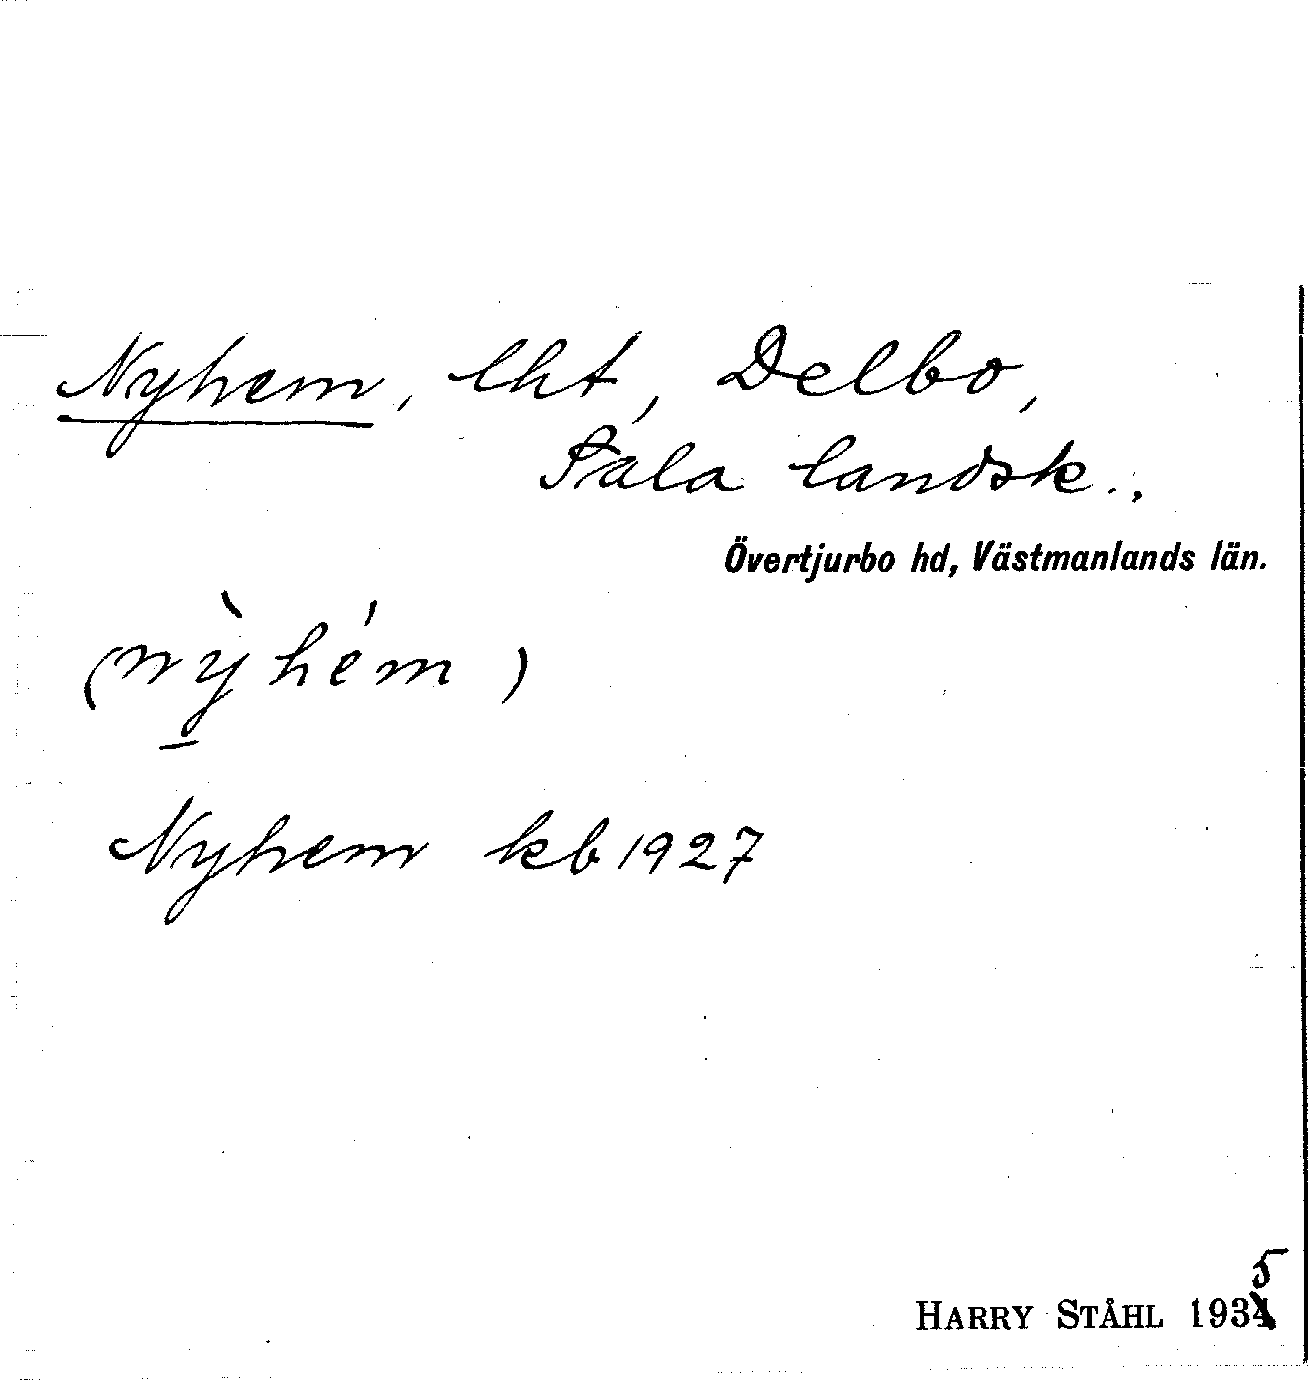 Nyhem, lht, Delbo,
Sala landsk.,
Övertjurbo hd, Västmanlands län.
(nỳhém)
Nyhem kb 1927
HARRY STÅHL 1935